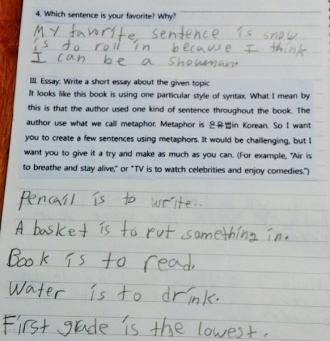 4. Which sentence is your favorite? Why?
My favorite, sentence is snow
is to roll in becauwe I think
I can be a showman.
III. Essay: Write a short essay about the given topic
It looks like this book is using one particular style of syntax. What I mean by
this is that the author used one kind of sentence throughout the book. The
author use what we call metaphor. Metaphor is 은유법in Korean. So I want
you to create a few sentences using metaphors. It would be challenging, but I
want you to give it a try and make as much as you can. (For example, "Air is
to breathe and stay alive," or "TV is to watch celebrities and enjoy comedies.")
Pencail is to write..
A basket is to put something in.
Book is to read.
Water is to drink.
First grade is the lowest.